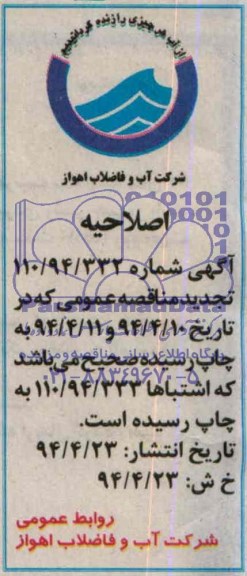 از آب هر چیزی را زنده گردانیدیم
شرکت آب و فاضلاب اهواز
اصلاحیه
آگهی شماره ۱۱۰/۹۴/۳۳۲
تجدیدمناقصه عمومی که در
تاریخ ۹۴/۴/۱۰ و ۹۴/۴/۱۱ به
چاپ رسیده صحیح می باشد
که اشتباها ۱۱۰/۹۴/۳۳۳ به
چاپ رسیده است.
تاریخ انتشار: ۹۴/۴/۲۳
خ ش: ۹۴/۴/۲۳
روابط عمومی
شرکت آب و فاضلاب اهواز
ParsNamadData
پایگاه اطلاع رسانی مناقصه و مزایده
۰۲۱-۸۸۳۴۹۶۷۰-۵